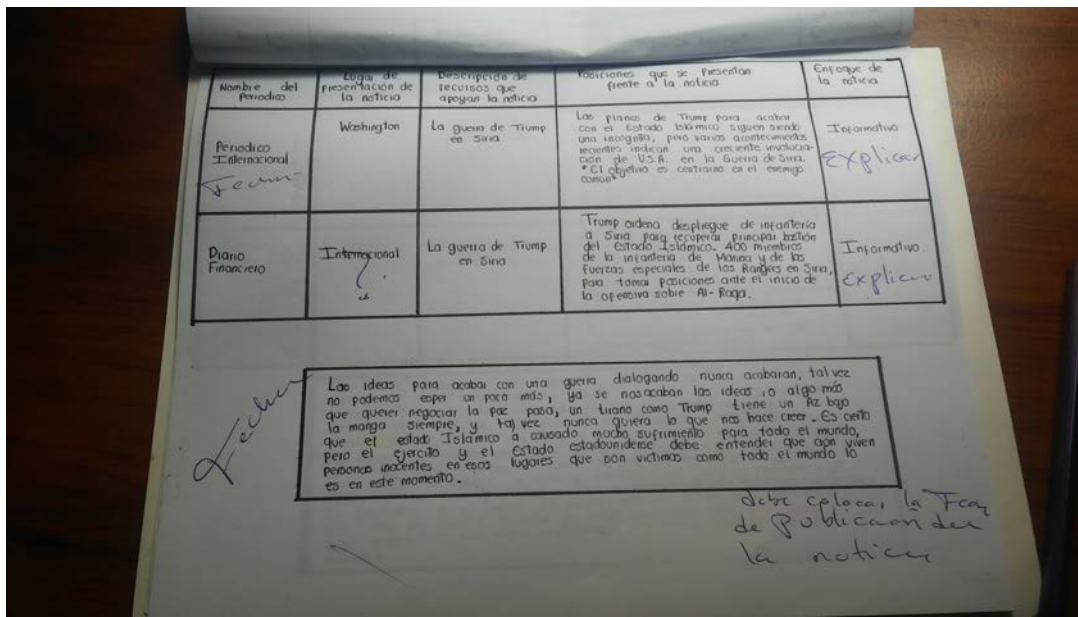 Nombre del
Periodico
Lugar de
presentación de
la noticia
Descripción de
recursos que
apoyan la noticia
Posiciones que se presentan
frente a la noticia
Enfoque de
la noticia
Periodico
Internacional
Washington
La guerra de Trump
en Siria
Los planes de Trump para acabar
con el Estado Islámico siguen siendo
una incognita, pero varios acontecimientos
recientes indican una creciente involucra-
ción de U.S.A. en la Guerra de Siria.
"El objetivo es centrarno en el enemigo
comun"
Informativo
Explicar
Diario
Financiero
Internacional
?
La guerra de Trump
en Siria
Trump ordena despliegue de infantería
a Siria para recuperar principal bastión
del Estado Islámico. 400 miembros
de la infantería de Marina y de las
fuerzas especiales de los Rangers en Siria,
para tomar posiciones ante el inicio de
la ofensiva sobre Al-Raqa.
Informativo.
Explicar
Fecha
Las ideas para acabar con una guerra dialogando nunca acabaran, tal vez
no podemos esper un poco más, ya se nos acaban las ideas, o algo más
que querer negociar la paz pasa, un tirano como Trump tiene un Az bajo
la manga siempre, y tal vez nunca quiera lo que nos hace creer. Es cierto
que el estado Islámico a causado mucho sufrimiento para todo el mundo,
pero el ejercito y el Estado estadounidense debe entender que aún viven
personas inocentes en esos lugares que son victimas como todo el mundo lo
es en este momento.
debe colocar la
de Publicación de
la noticia